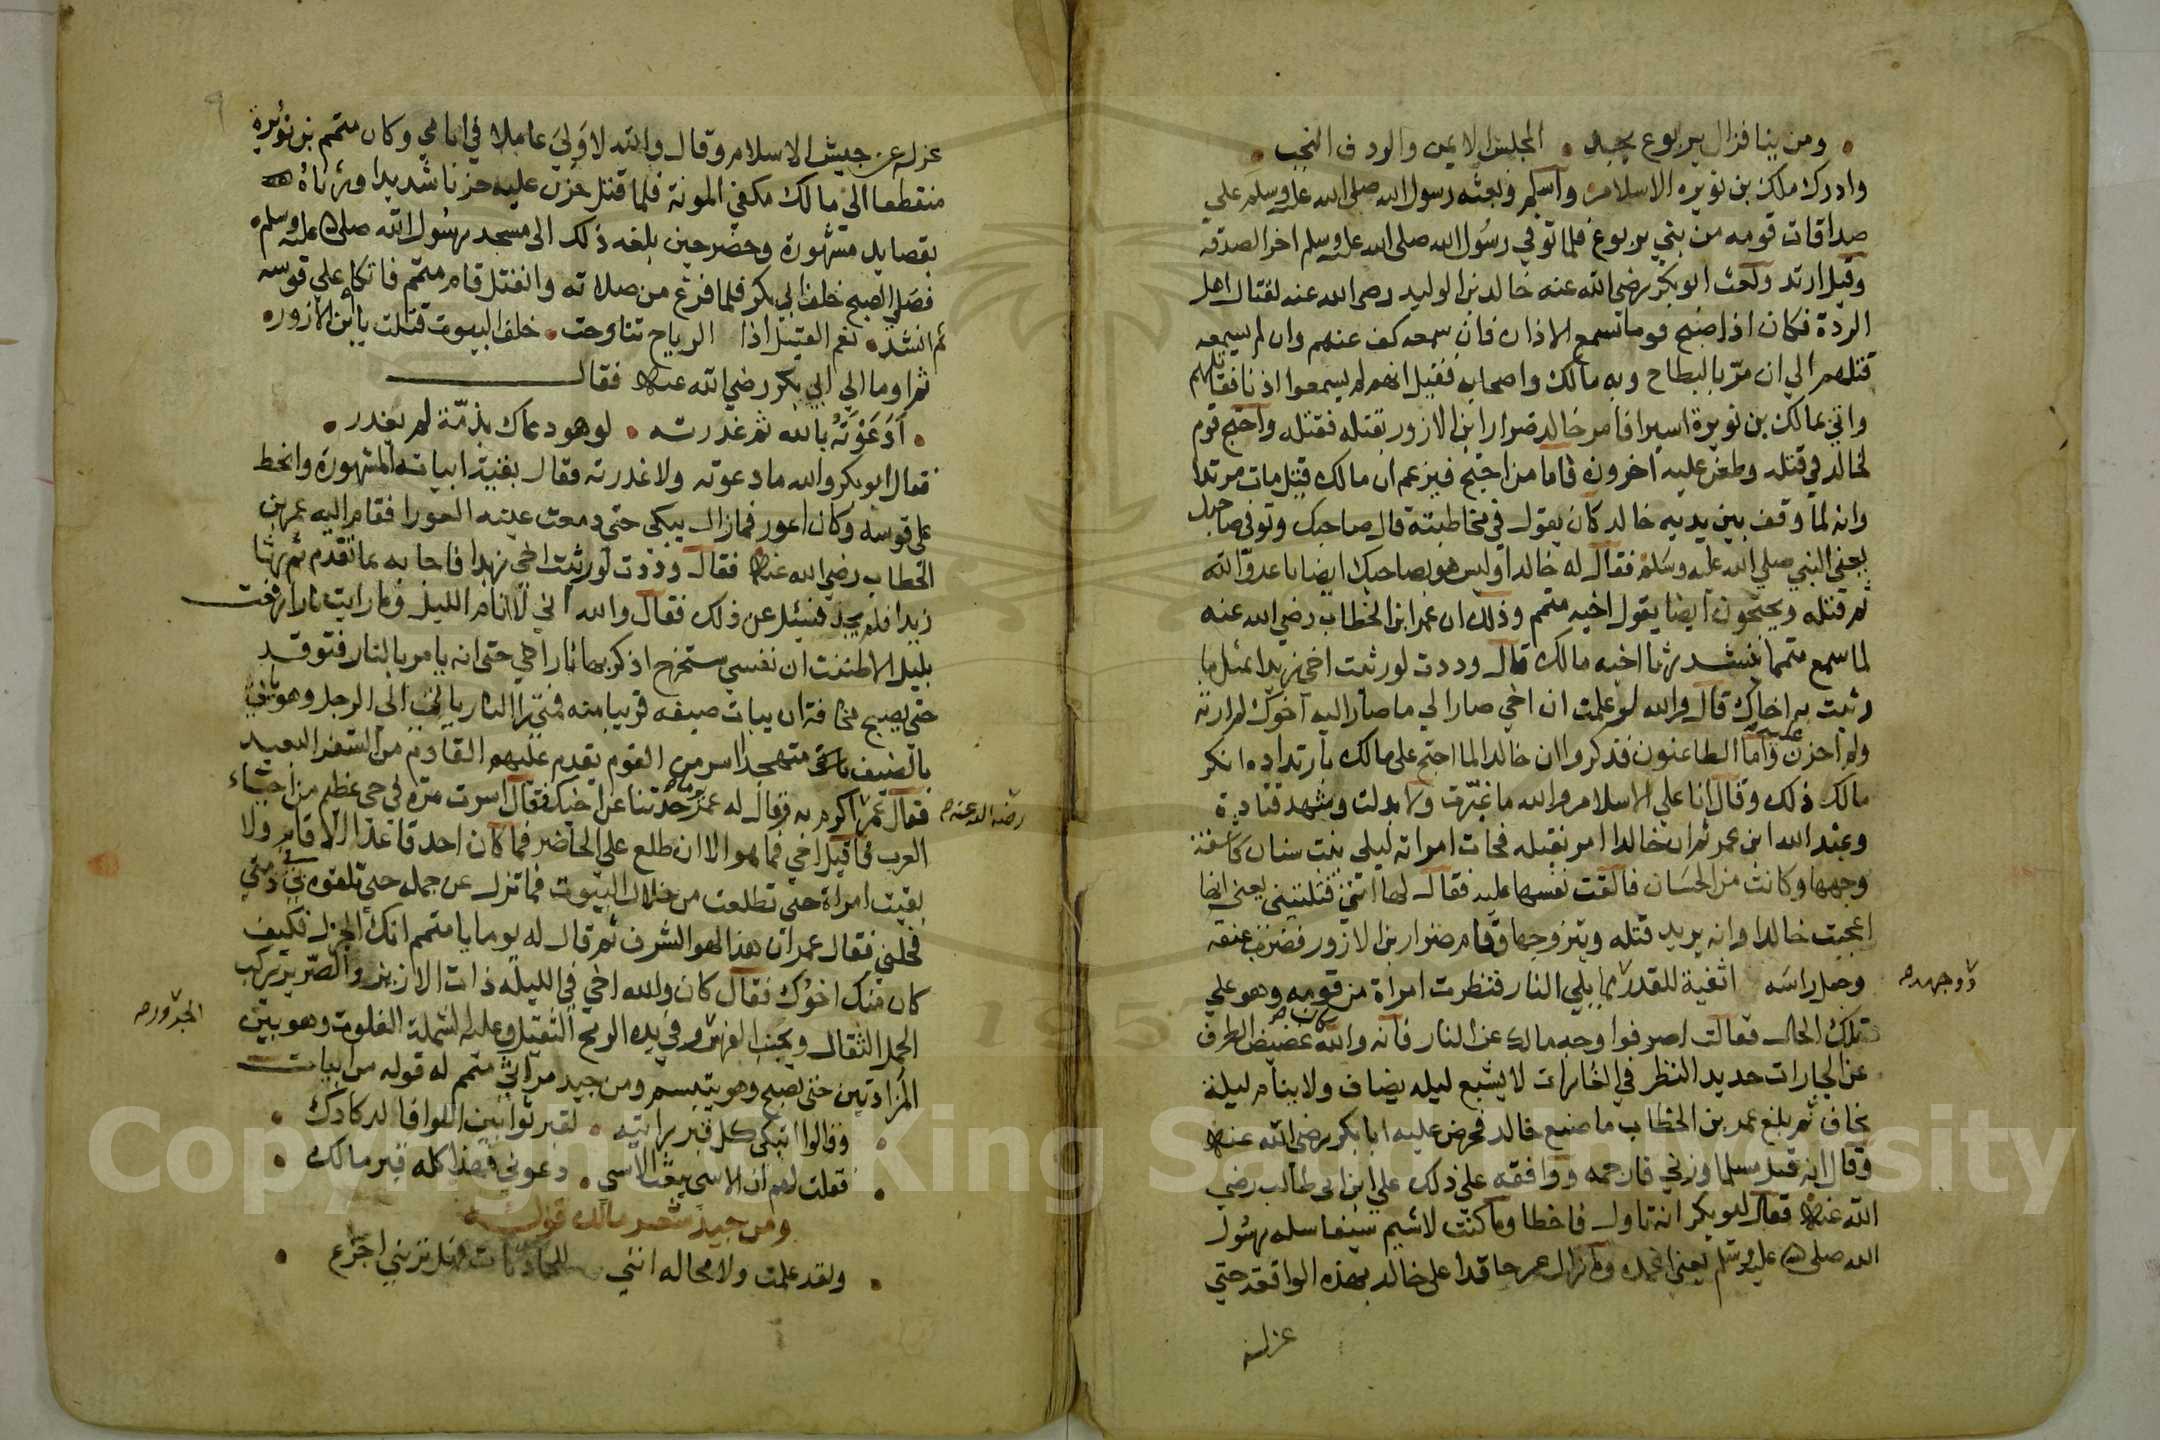 ومن ينا فزال يربوع بجبه المجلس الايمن والردف النجب
وادرك مالك بن نويره الاسلام واسلم وبعثه رسول الله صلى الله عليه وسلم على
صداقات قومه من بني يربوع فلما توفي رسول الله صلى الله عليه وسلم اخر الصدقة
وقيل ارتد وبعث ابو بكر رضي الله عنه خالد بن الوليد رضى الله عنه لقتال اهل
الردة فكان اذا صبح قوما تسمع الاذان فان سمعه كف عنهم وان لم يسمعه
قتلهم الي ان مر بالبطاح وبه مالك واصحابه فقيل انهم لم يسمعوا اذنا فقاتلهم
واتي بمالك بن نويرة اسيرا فامر خالد ضرار ابن الازور بقتله فقتله واحتج قوم
لخالد في قتله وطعن عليه اخرون فاما من احتج فيزعم ان مالك قيتل مات مرتدا
وانه لما وقف بين يديه خالد كان يقول في مخاطبته قال صاحبك وتوفى صاحبك
يعني النبي صلي الله عليه وسلم فقال له خالد اوليس هو بصاحبك ايضا يا عدو الله
ثم قتله ويحتجون ايضا بقول اخيه متمم وذلك ان عمر ابن الخطاب رضي الله عنه
لما سمع متمما ينشد رثا اخيه مالك قال وددت لو رثيت اخي زيدا بمثل ما
رثيت به اخاك قال والله لو علمت ان اخي صار الي ما صار اليه اخوك لم ارثه
ولم احزن عليه واما الطاعنون فذكروا ان خالدا لما احتج على مالك بارتداده انكر
مالك ذلك وقال انا علي الاسلام والله ما غيرت ولا بدلت وشهد قتادة
وعبد الله ابن عمر ثم ان خالدا امر بقتله فجات امراته ليلى بنت سنان كاشفة
وجهها وكانت من الحسان فالقت نفسها عليه فقال لها انتي قتلتيني يعني انها
اعجبت خالدا وانه يريد قتله ويتزوجها وقام ضرار بن الازور فضرب عنقه
وجعل راسه اثفية للقدر مما يلي النار فنظرت امراة من قومه وهو علي
ووجهه صح
تلك الحال فقالت اصرفوا وجه مالك عن النار فانه والله كان صح غضيض الطرف
عن الجارات حديد النظر في الغارات لا يشبع ليله يضاف ولا ينام ليلة
يخاف ثم بلغ عمر بن الخطاب ما صنع خالد فحرض عليه ابا بكر رضي الله عنه
وقال انه قتل مسلما وزني فارجمه ووافقه علي ذلك علي ابن ابي طالب رضي
الله عنه فقال ابو بكر انه تاول فاخطا وما كنت لاشيم سيفا سله رسول
الله صلى الله عليه وسلم يعني اغمده وما زال عمر حاقدا على خالد بهذه الواقعة حتي
عزله
٩
عزله عن جيش الاسلام وقال والله لا ولي عاملا في ايامي وكان متمم بن نويرة
منقطعا الي مالك مكفي المونة فلما قتل حزن عليه حزنا شديدا ورثاه
بقصايد مشهورة وحضر حين بلغه ذلك الى مسجد رسول الله صلى الله عليه وسلم
فصلى الصبح خلف ابي بكر فلما فرغ من صلاته وانفتل قام متمم فاتكا على قوسه
ثم انشد نعم القتيل اذا الرياح تناوحت خلف البيوت قتلت يا ابن الازور
ثم اوما الى ابي بكر رضي الله عنه فقال
ادعوته بالله ثم غدرته لو هو دعاك بذمة لم يغدر
فقال ابو بكر والله ما دعوته ولا غدرته فقال بقية ابياته المشهورة وانحط
على قوسه وكان اعور فما زال يبكي حتي دمعت عينه العورا فقام اليه عمر بن
الخطاب رضي الله عنه فقال وددت لو رثيت اخي زيدا فاجابه بما تقدم ثم رثا
زيدا فلم يجد فسئل عن ذلك فقال والله اني لا انام الليل وما رايت نارا رفعت
بليل الا ظننت ان نفسي ستخرج اذكر بها نار اخي حتى انه يامر بالنار فتوقد
حتى يصبح مخافة ان يبات ضيفه قريبا منه فمتي يرا النار ياتي الى الرجل وهو ياتي
بالضيف متهجدا اسر من القوم يقدم عليهم القادم من السفر البعيد
فقال عمر اكرم به وقال له عمر رضي الله عنه صح يوما صح حدثنا عن اخيك فقال اسرت مرة في حي عظيم من احياء
العرب فاقبل اخي فما هو الا ان طلع على الحاضر فما كان احد قاعدا الا قام ولا
بقيت امراة حتى تطلعت من خلال البيوت فما نزل عن جمله حتى تلقوه بي في رمتي
فحلني فقال عمر ان هذا لهو الشرف ثم قال له يوما يا متمم انك لجزل فكيف
كان منك اخوك فقال كان والله اخي في الليلة ذات الازيز والصرير يركب
الجمل الثقال ويجنب الفرس الجرور صح وفي يده الرمح الثقيل وعليه الشملة الفلوت وهو بين
المزادتين حتى يصبح وهو يتبسم ومن جيد مراثي متمم له قوله من ابيات
وقالوا اتبكي كل قبر رايته لقبر ثوا بين اللوا فالدكادك
فقلت لهم ان الاسى يبعث الاسى دعوني فهذا كله قبر مالك
ومن جيد شعر مالك قوله
ولقد علمت ولا محاله انني للحادثات فهل تريني اجزع
Copyright © King Saud University
1957